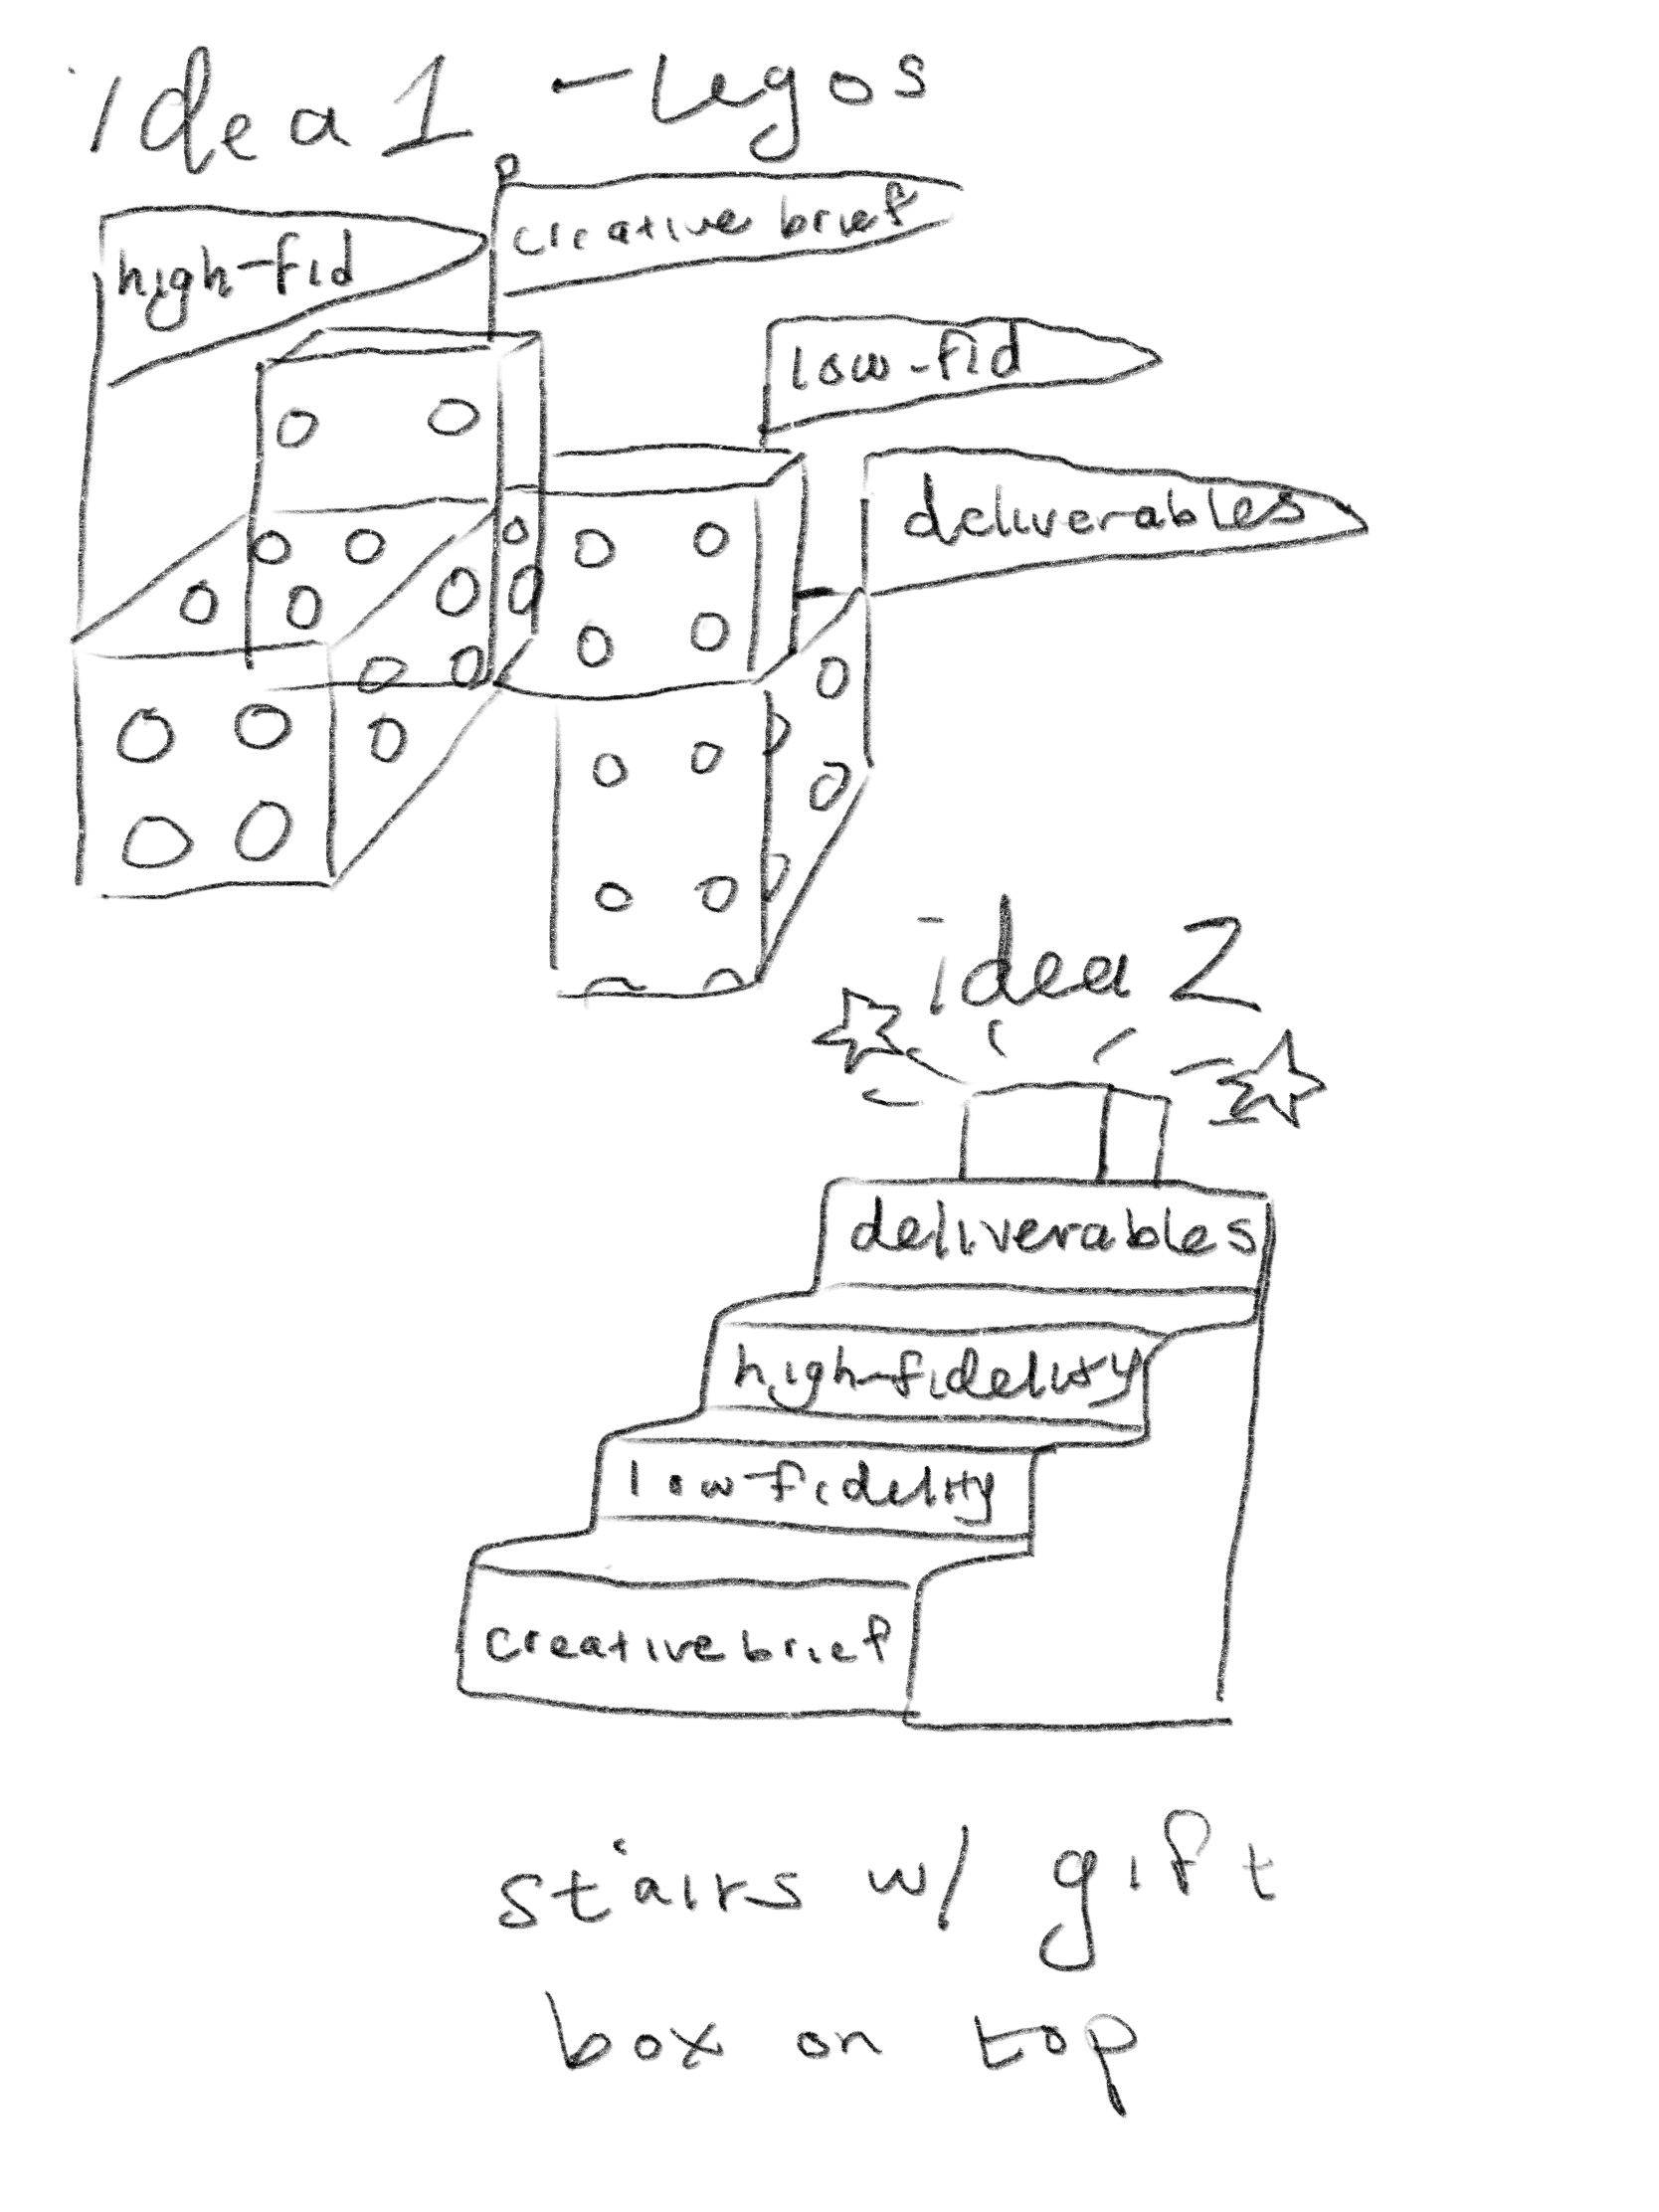 idea 1 - Legos
high-fid
creative brief
low-fid
deliverables
idea 2
deliverables
high-fidelity
low-fidelity
creative brief
stairs w/ gift
box on top